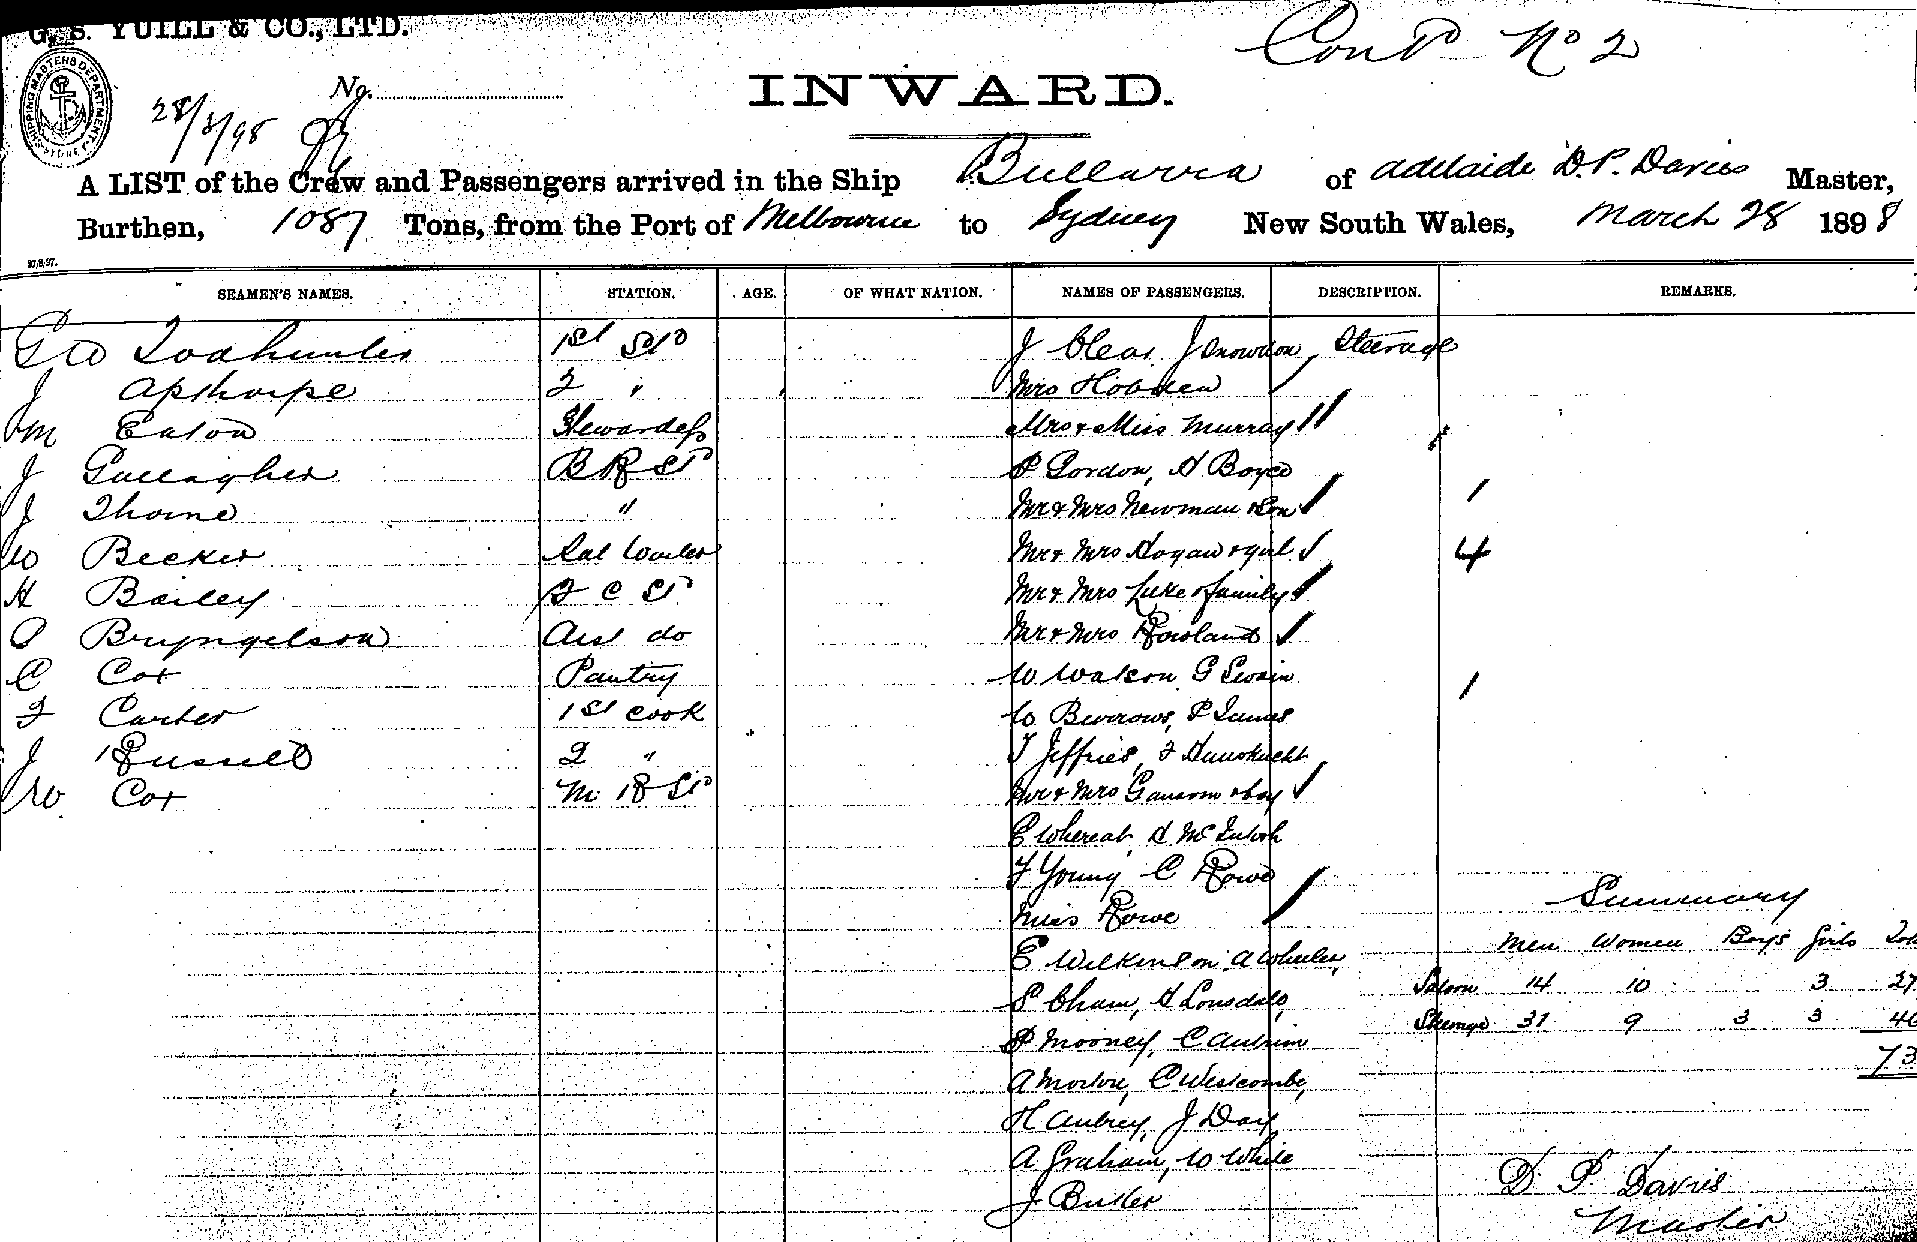 G. S. YUILL & CO., LTD.
Cont No 2
SHIPPING MASTERS DEPARTMENT SYDNEY
No.
28/3/98
INWARD.
A LIST of the Crew and Passengers arrived in the Ship Bullarra of Adelaide D. P. Davies Master,
Burthen, 1087 Tons, from the Port of Melbourne to Sydney New South Wales, March 28 1898
SEAMEN'S NAMES. STATION. AGE. OF WHAT NATION. NAMES OF PASSENGERS. DESCRIPTION. REMARKS.
Geo Todhunter 1st Std J Clear J Snowdon, Steerage
J Apthorpe 2 " Mrs Hobden
M Eaton Stewardess Mrs & Miss Murray
J Gallagher B R St P Gordon, A Boyce
J Thorne " Mr & Mrs Newman & Son 1
W Becker Sal Waiter Mr & Mrs Hogan & girl 4
H Bailey F C St Mr & Mrs Luke & family
O Bryngelson Asst do Mr & Mrs Rowland
C Cox Pantry W Watson G Swain 1
F Carter 1st Cook W Burrows, P James
J Russell 2 " T Jeffries, F
W Cox M R St Mr & Mrs Gansom & boy
E Whereat, A McIntosh
F Young C Rowe
Miss Rowe
Summary
Men Women Boys Girls
E Wilkinson, A Wheeler,
Saloon 14 10 3 27
S Cham, H Lonsdale,
Steerage 31 9 3 3 46
P Mooney, C Antrim
73
A Morton, C Westcombe,
H Aubrey, J Day
A Graham, W White
D P Davies
J Butler
Master